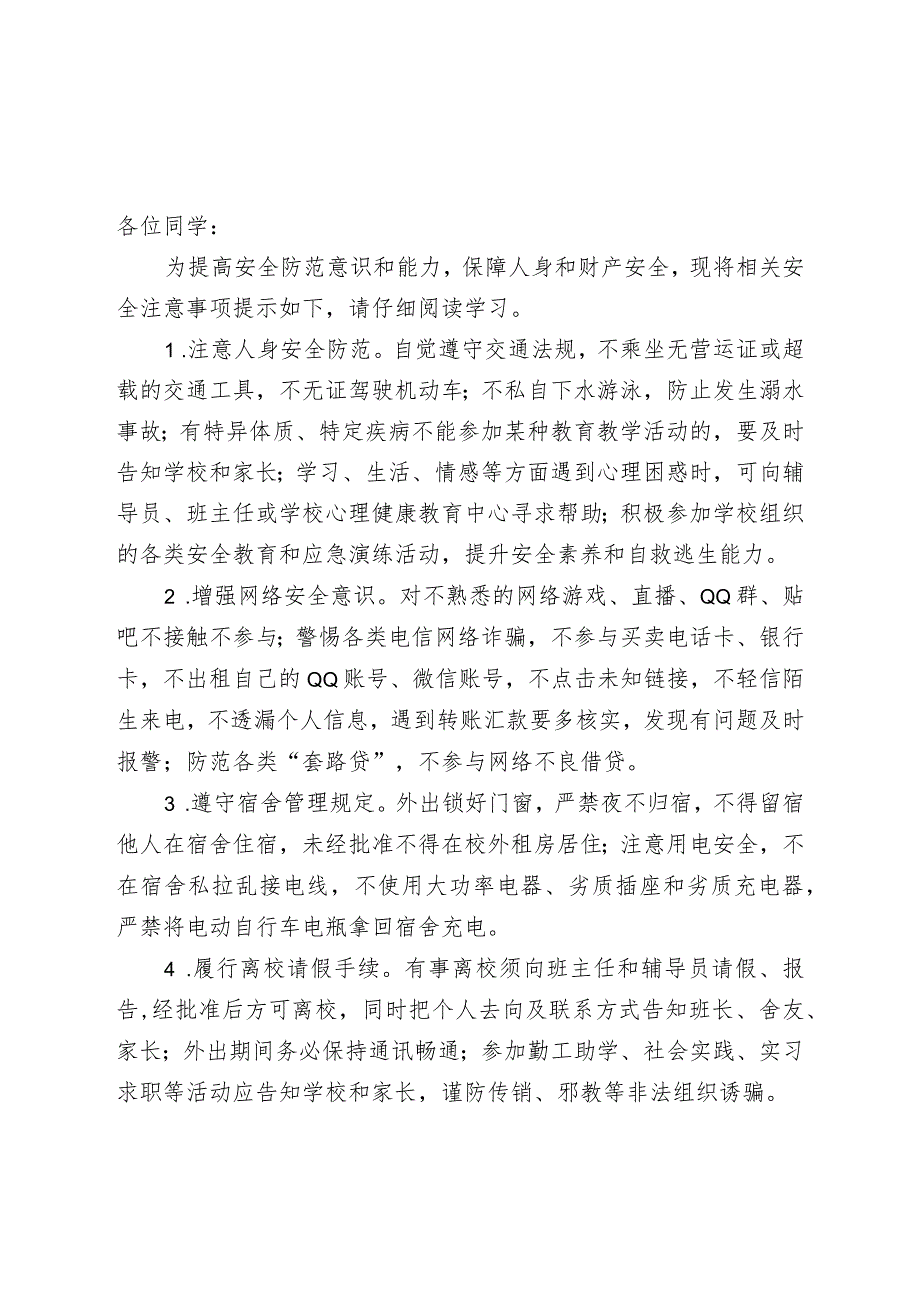 各位同学：
为提高安全防范意识和能力，保障人身和财产安全，现将相关安
全注意事项提示如下，请仔细阅读学习。
1 .注意人身安全防范。自觉遵守交通法规，不乘坐无营运证或超
载的交通工具，不无证驾驶机动车；不私自下水游泳，防止发生溺水
事故；有特异体质、特定疾病不能参加某种教育教学活动的，要及时
告知学校和家长；学习、生活、情感等方面遇到心理困惑时，可向辅
导员、班主任或学校心理健康教育中心寻求帮助；积极参加学校组织
的各类安全教育和应急演练活动，提升安全素养和自救逃生能力。
2 .增强网络安全意识。对不熟悉的网络游戏、直播、QQ 群、贴
吧不接触不参与；警惕各类电信网络诈骗，不参与买卖电话卡、银行
卡，不出租自己的 QQ 账号、微信账号，不点击未知链接，不轻信陌
生来电，不透漏个人信息，遇到转账汇款要多核实，发现有问题及时
报警；防范各类“套路贷”，不参与网络不良借贷。
3 .遵守宿舍管理规定。外出锁好门窗，严禁夜不归宿，不得留宿
他人在宿舍住宿，未经批准不得在校外租房居住；注意用电安全，不
在宿舍私拉乱接电线，不使用大功率电器、劣质插座和劣质充电器，
严禁将电动自行车电瓶拿回宿舍充电。
4 .履行离校请假手续。有事离校须向班主任和辅导员请假、报
告,经批准后方可离校，同时把个人去向及联系方式告知班长、舍友、
家长；外出期间务必保持通讯畅通；参加勤工助学、社会实践、实习
求职等活动应告知学校和家长，谨防传销、邪教等非法组织诱骗。